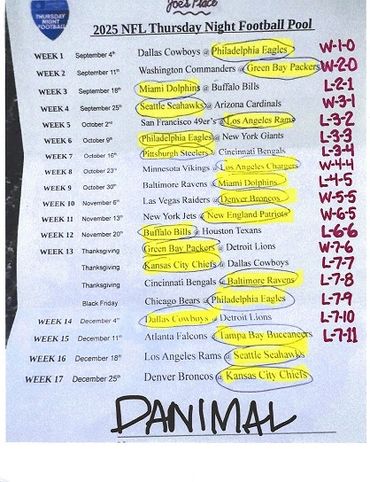 Joe's Place
THURSDAY
NIGHT
FOOTBALL
2025 NFL Thursday Night Football Pool
WEEK 1 September 4th Dallas Cowboys @ Philadelphia Eagles W-1-0
WEEK 2 September 11th Washington Commanders @ Green Bay Packers W-2-0
WEEK 3 September 18th Miami Dolphins @ Buffalo Bills L-2-1
WEEK 4 September 25th Seattle Seahawks @ Arizona Cardinals W-3-1
WEEK 5 October 2nd San Francisco 49er's @ Los Angeles Rams L-3-2
WEEK 6 October 9th Philadelphia Eagles @ New York Giants L-3-3
WEEK 7 October 16th Pittsburgh Steelers @ Cincinnati Bengals L-3-4
WEEK 8 October 23rd Minnesota Vikings @ Los Angeles Chargers W-4-4
WEEK 9 October 30th Baltimore Ravens @ Miami Dolphins L-4-5
WEEK 10 November 6th Las Vegas Raiders @ Denver Broncos W-5-5
WEEK 11 November 13th New York Jets @ New England Patriots W-6-5
WEEK 12 November 20th Buffalo Bills @ Houston Texans L-6-6
WEEK 13 Thanksgiving Green Bay Packers @ Detroit Lions W-7-6
Thanksgiving Kansas City Chiefs @ Dallas Cowboys L-7-7
Thanksgiving Cincinnati Bengals @ Baltimore Ravens L-7-8
Black Friday Chicago Bears @ Philadelphia Eagles L-7-9
WEEK 14 December 4th Dallas Cowboys @ Detroit Lions L-7-10
WEEK 15 December 11th Atlanta Falcons @ Tampa Bay Buccaneers L-7-11
WEEK 16 December 18th Los Angeles Rams @ Seattle Seahawks
WEEK 17 December 25th Denver Broncos @ Kansas City Chiefs
DANIMAL